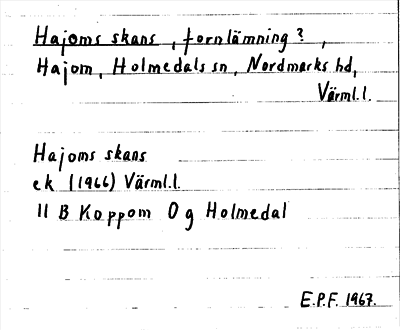 Hajoms skans, fornlämning?,
Hajom, Holmedals sn, Nordmarks hd,
Värml.l.
Hajoms skans
ek (1966) Värml.l.
11 B Koppom 0 g Holmedal
E.P.F. 1967.